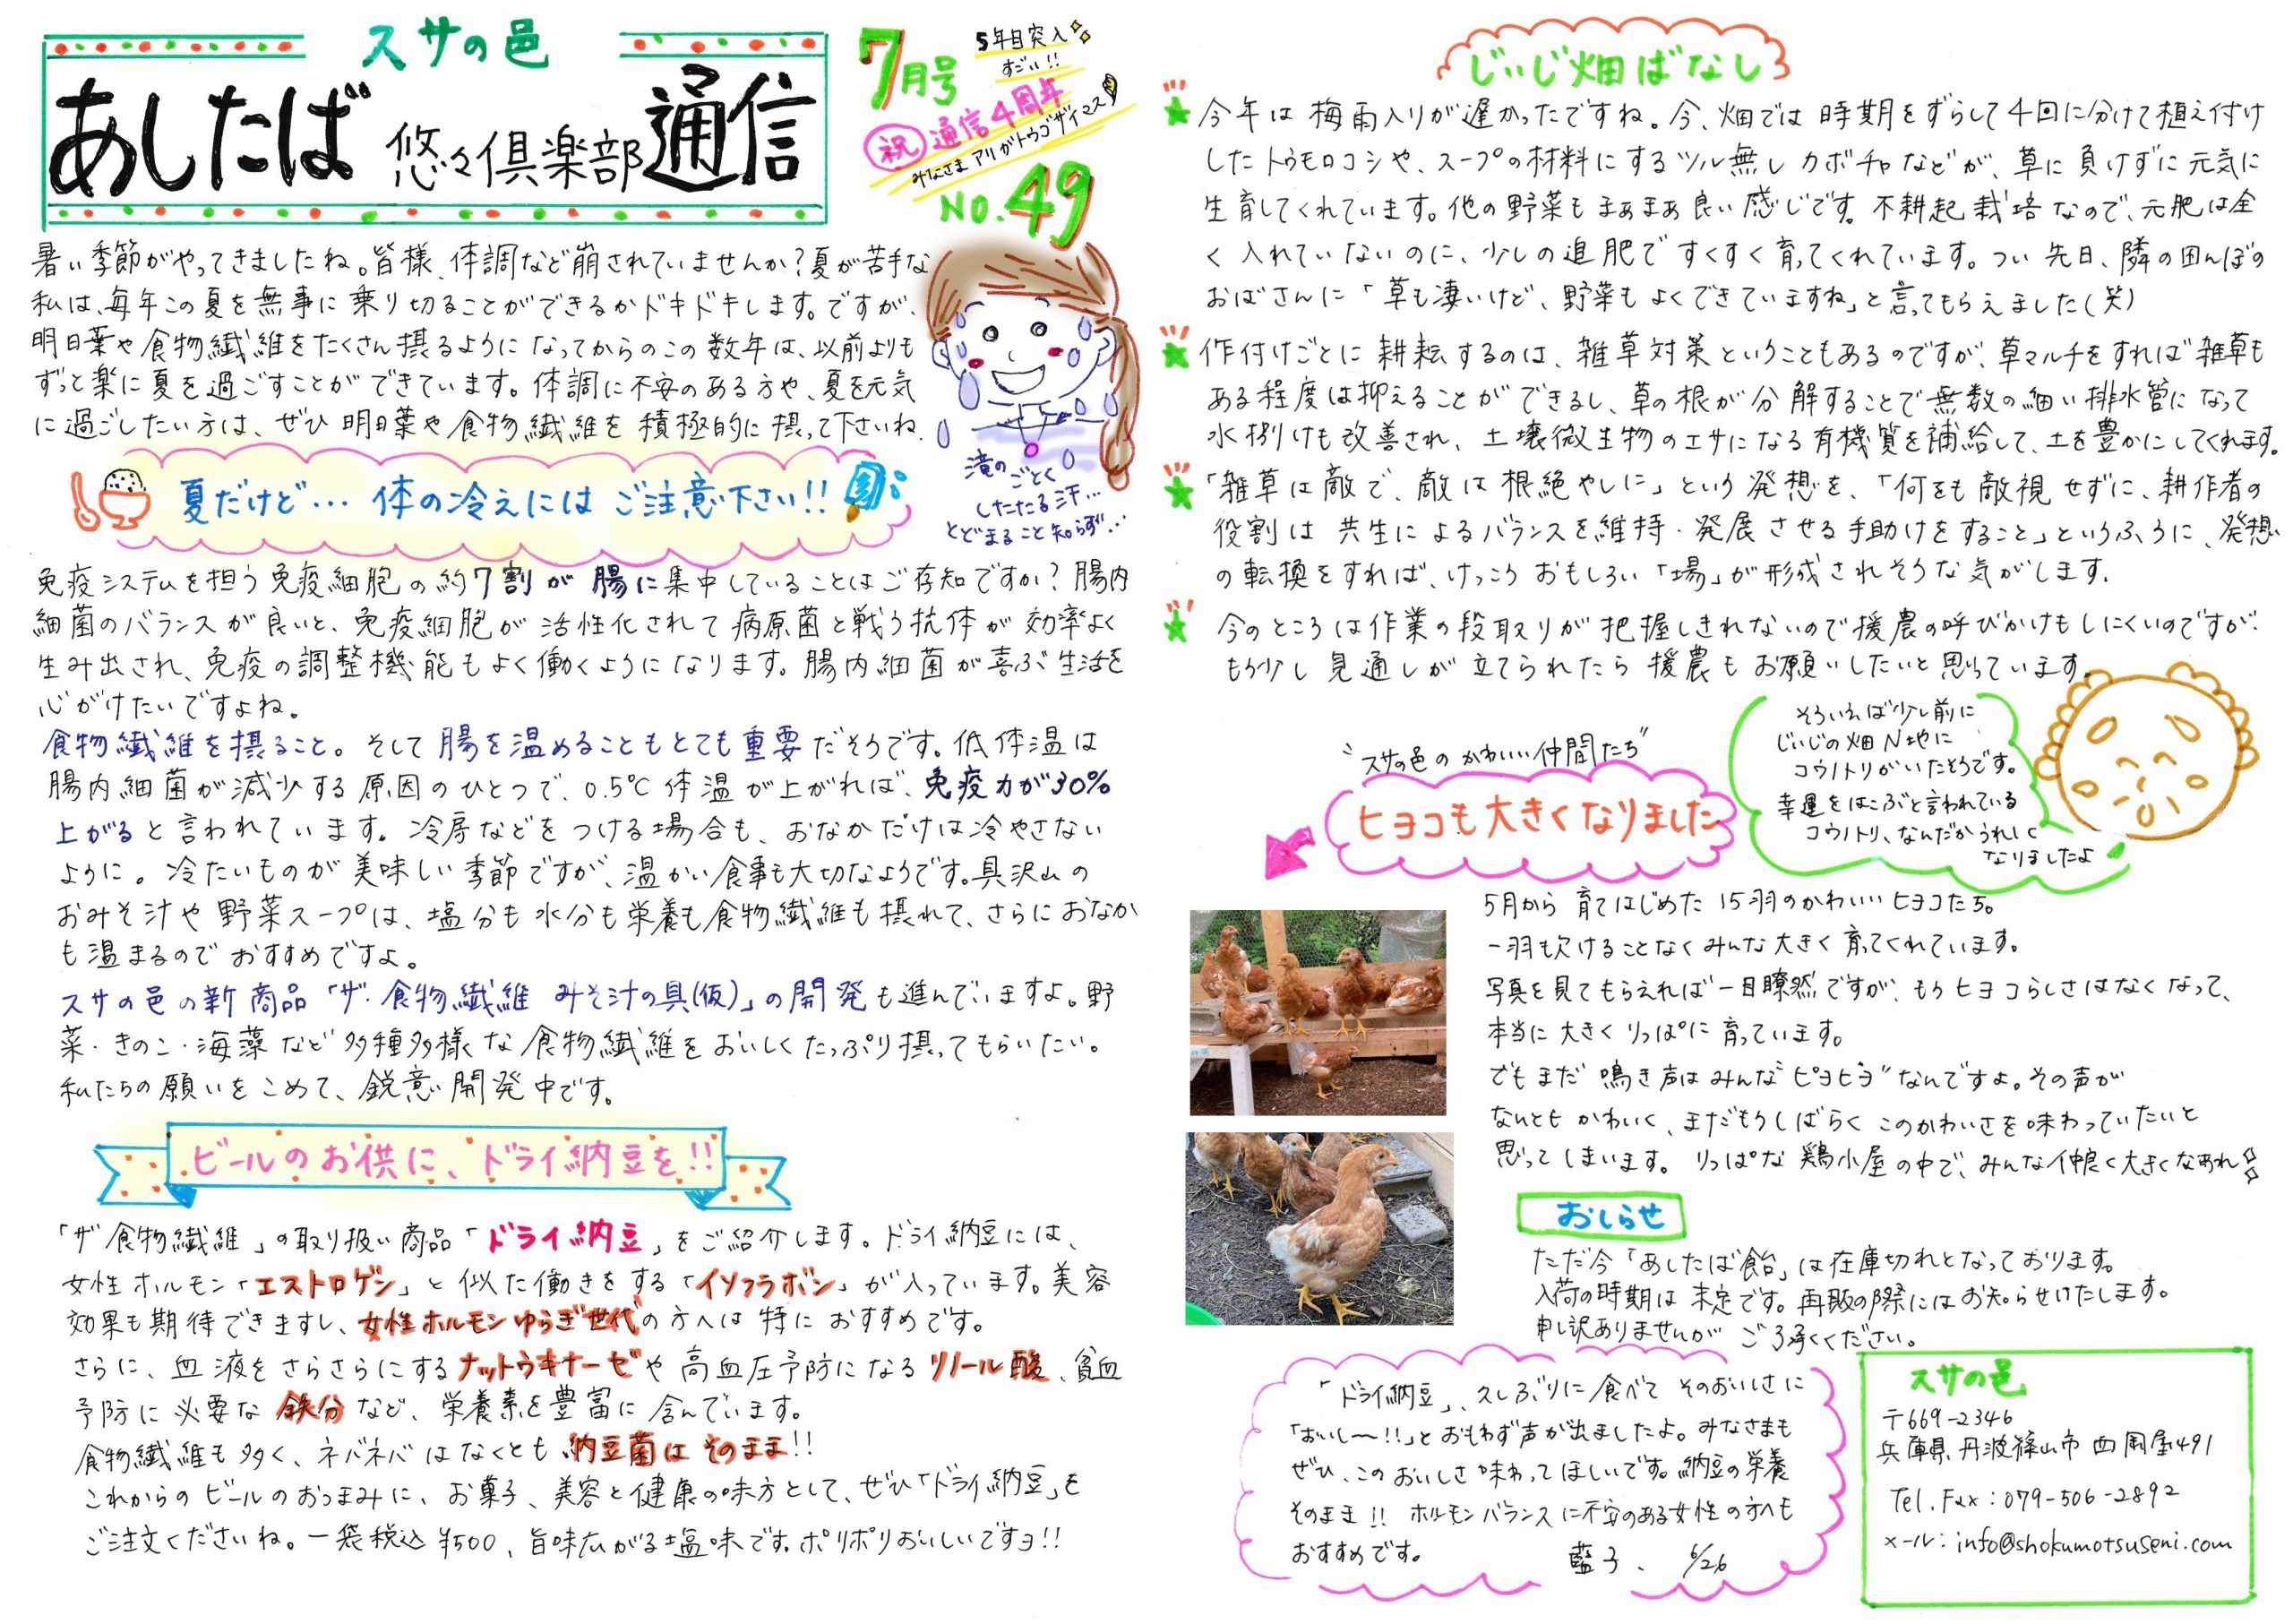 スサの邑
あしたば 悠々倶楽部 通信
7月号
5年目突入
すごい!!
祝 通信4周年
みなさまアリガトウゴザイマス
NO.49
暑い季節がやってきましたね。皆様、体調など崩されていませんか?夏が苦手な
私は、毎年この夏を無事に乗り切ることができるかドキドキします。ですが、
明日葉や食物繊維をたくさん摂るようになってからのこの数年は、以前よりも
ずっと楽に夏を過ごすことができています。体調に不安のある方や、夏を元気
に過ごしたい方は、ぜひ明日葉や食物繊維を積極的に摂って下さいね。
滝のごとく
したたる汗…
とどまること知らず…
夏だけど… 体の冷えにはご注意下さい!!
免疫システムを担う免疫細胞の約7割が腸に集中していることはご存知ですか?腸内
細菌のバランスが良いと、免疫細胞が活性化されて病原菌と戦う抗体が効率よく
生み出され、免疫の調整機能もよく働くようになります。腸内細菌が喜ぶ生活を
心がけたいですよね。
食物繊維を摂ること。そして腸を温めることもとても重要だそうです。低体温は
腸内細菌が減少する原因のひとつで、0.5℃体温が上がれば、免疫力が30%
上がると言われています。冷房などをつける場合も、おなかだけは冷やさない
ように。冷たいものが美味しい季節ですが、温かい食事も大切なようです。具沢山の
おみそ汁や野菜スープは、塩分も水分も栄養も食物繊維も摂れて、さらにおなか
も温まるのでおすすめですよ。
スサの邑の新商品「ザ・食物繊維 みそ汁の具(仮)」の開発も進んでいますよ。野
菜・きのこ・海藻など多種多様な食物繊維をおいしくたっぷり摂ってもらいたい。
私たちの願いをこめて、鋭意開発中です。
ビールのお供に、ドライ納豆を!!
「ザ食物繊維」の取り扱い商品「ドライ納豆」をご紹介します。ドライ納豆には、
女性ホルモン「エストロゲン」と似た働きをする「イソフラボン」が入っています。美容
効果も期待できますし、女性ホルモンゆらぎ世代の方へは特におすすめです。
さらに、血液をさらさらにするナットウキナーゼや高血圧予防になるリノール酸、貧血
予防に必要な鉄分など、栄養素を豊富に含んでいます。
食物繊維も多く、ネバネバはなくとも納豆菌はそのまま!!
これからのビールのおつまみに、お菓子、美容と健康の味方として、ぜひ「ドライ納豆」を
ご注文くださいね。一袋税込¥500、旨味広がる塩味です。ポリポリおいしいですョ!!
じぃじ畑ばなし
今年は梅雨入りが遅かったですね。今、畑では時期をずらして4回に分けて植え付け
したトウモロコシや、スープの材料にするツル無しカボチャなどが、草に負けずに元気に
生育してくれています。他の野菜もまあまあ良い感じです。不耕起栽培なので、元肥は全
く入れていないのに、少しの追肥ですくすく育ってくれています。つい先日、隣の田んぼの
おばさんに「草も凄いけど、野菜もよくできていますね」と言ってもらえました(笑)
作付けごとに耕耘するのは、雑草対策ということもあるのですが、草マルチをすれば雑草も
ある程度は抑えることができるし、草の根が分解することで無数の細い排水管になって
水捌けも改善され、土壌微生物のエサになる有機質を補給して、土を豊かにしてくれます。
「雑草は敵で、敵は根絶やしに」という発想を、「何をも敵視せずに、耕作者の
役割は共生によるバランスを維持・発展させる手助けをすること」というふうに、発想
の転換をすれば、けっこうおもしろい「場」が形成されそうな気がします。
今のところは作業の段取りが把握しきれないので援農の呼びかけもしにくいのですが、
もう少し見通しが立てられたら援農もお願いしたいと思っています。
そういえば少し前に
じぃじの畑N地に
コウノトリがいたそうです。
幸運をはこぶと言われている
コウノトリ、なんだかうれしく
なりましたよ
"スサの邑のかわいい仲間たち"
ヒヨコも大きくなりました
5月から育てはじめた15羽のかわいいヒヨコたち。
一羽も欠けることなくみんな大きく育ってくれています。
写真を見てもらえれば一目瞭然ですが、もうヒヨコらしさはなくなって、
本当に大きくりっぱに育っています。
でもまだ鳴き声はみんな"ピヨピヨ"なんですよ。その声が
なんともかわいく、まだもうしばらくこのかわいさを味わっていたいと
思ってしまいます。りっぱな鶏小屋の中で、みんな仲良く大きくなあれ
おしらせ
ただ今「あしたば飴」は在庫切れとなっております。
入荷の時期は未定です。再販の際にはお知らせいたします。
申し訳ありませんがご了承ください。
「ドライ納豆」、久しぶりに食べてそのおいしさに
「おいし〜!!」とおもわず声が出ましたよ。みなさまも
ぜひ、このおいしさ味わってほしいです。納豆の栄養
そのまま!! ホルモンバランスに不安のある女性の方へも
おすすめです。 藍子、 6/26
スサの邑
〒669-2346
兵庫県丹波篠山市西岡屋491
Tel.Fax:079-506-2892
メール:info@shokumotsuseni.com